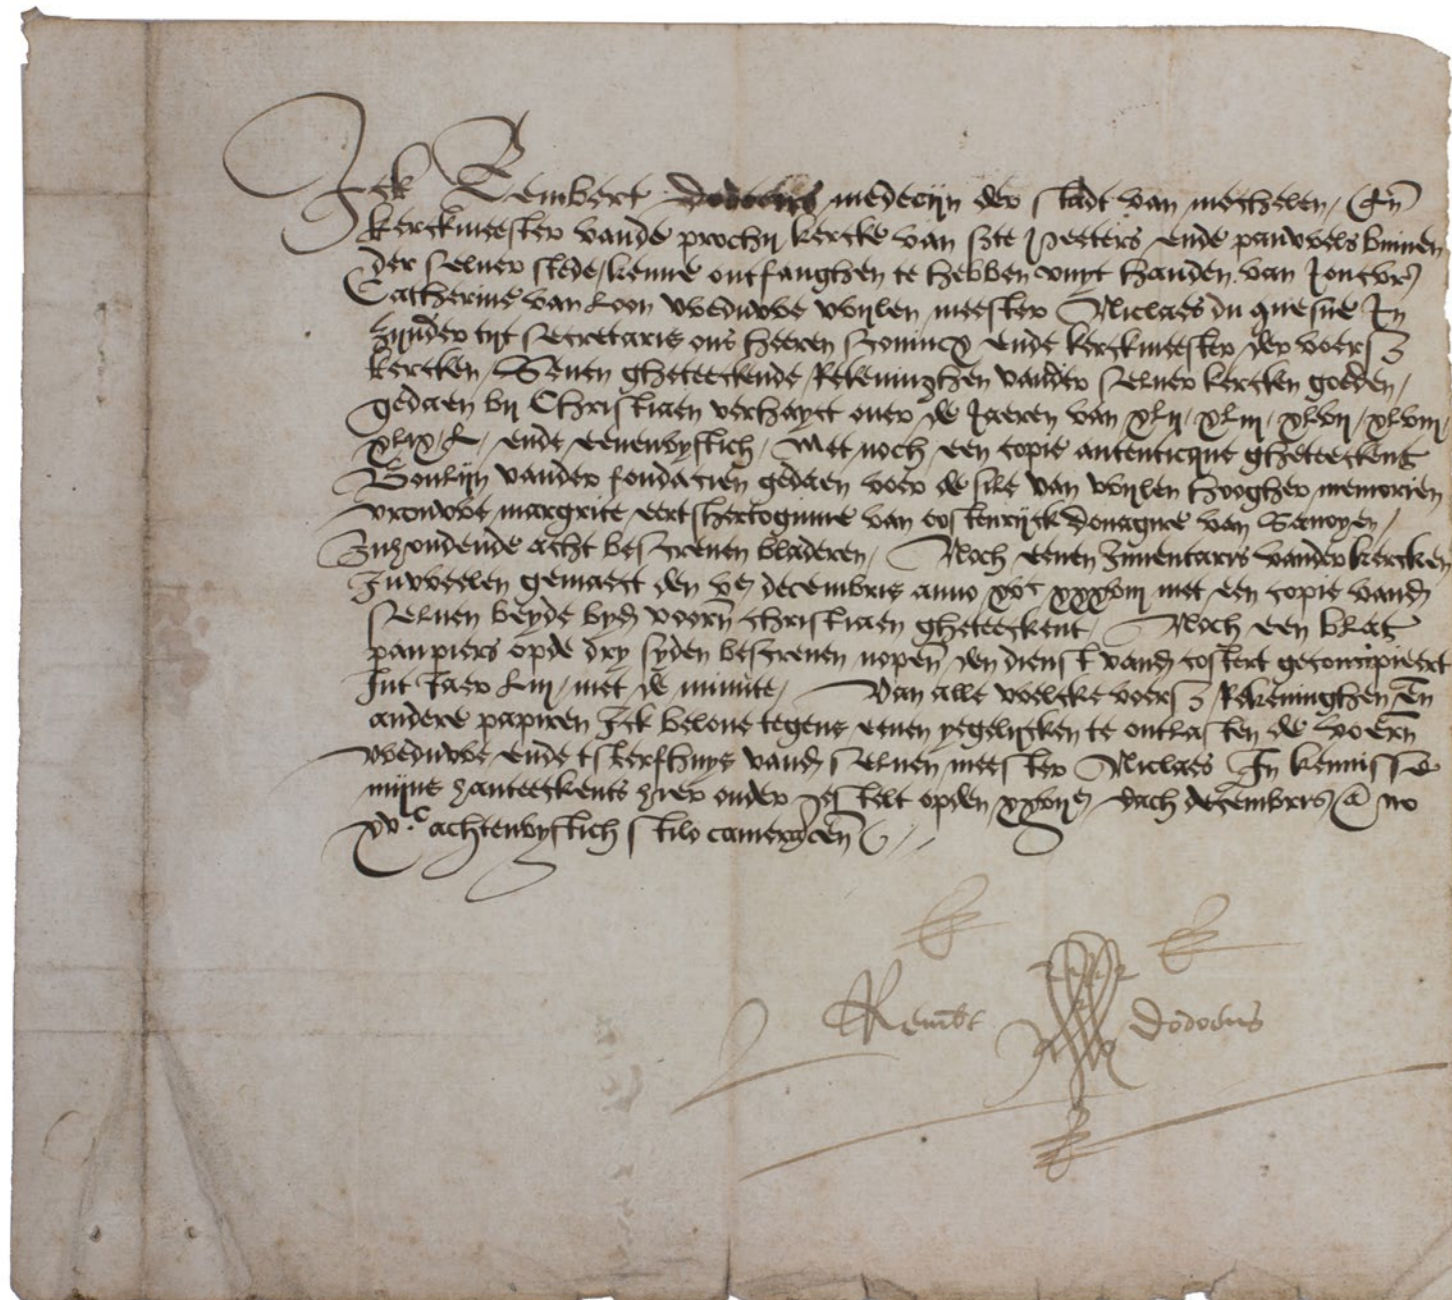 Ick Rembert Dodoens medecijn der stadt van mechelen, En̄
kerckmeester vande prochij kercke van Ste peeters ende pauwels binnen
der selver stede, kenne ontfanghen te hebben vuyt handen van Joncvr
Catherine van Loon weduwe wijlen meester Niclaes du quesne In
zijnder tijt secretaris ons heeren Conincx ende kerckmeester der voers
kercken, Seven gheteeckende Rekeninghen vander selver kercken goeden,
gedaen bij Christiaen verhayct over de Jaeren van xlij, xliij, xlvij, xlviij,
xlix, L, ende eenenvyftich, Met noch een copie autenticque gheteeckent
Boulijn vander fondacien gedaen voer de siele van wijlen hoogher memorien
vrouwe margrite eertshertoginne van oostenrijck Douagire van Savoyen,
Inhoudende acht bescreven bladeren, Noch eenen Inventaris vander kercken
Juweelen gemaect den ve decembris anno xvc xxxviij met een copie vand
selven beyde byd voorn̄ christiaen gheteeckent, Noch een blat
pampiers opde dry syden bescreven nopen̄ den dienst vand costert geconcipieert
Int Jaer Liij, met de minute, Van alle welcke voers Rekeninghen en̄
andere papiren Ick belove tegens eenen yegelijcken te ontlasten de voern̄
weduwe ende tsterfhuys vand selven meester Niclaes In kennisse
mijns hanteeckents hier onder gestelt opden xxvije dach decembris Ano
xv.c achtenvyftich stilo cameraceñ
Rembt Dodoens